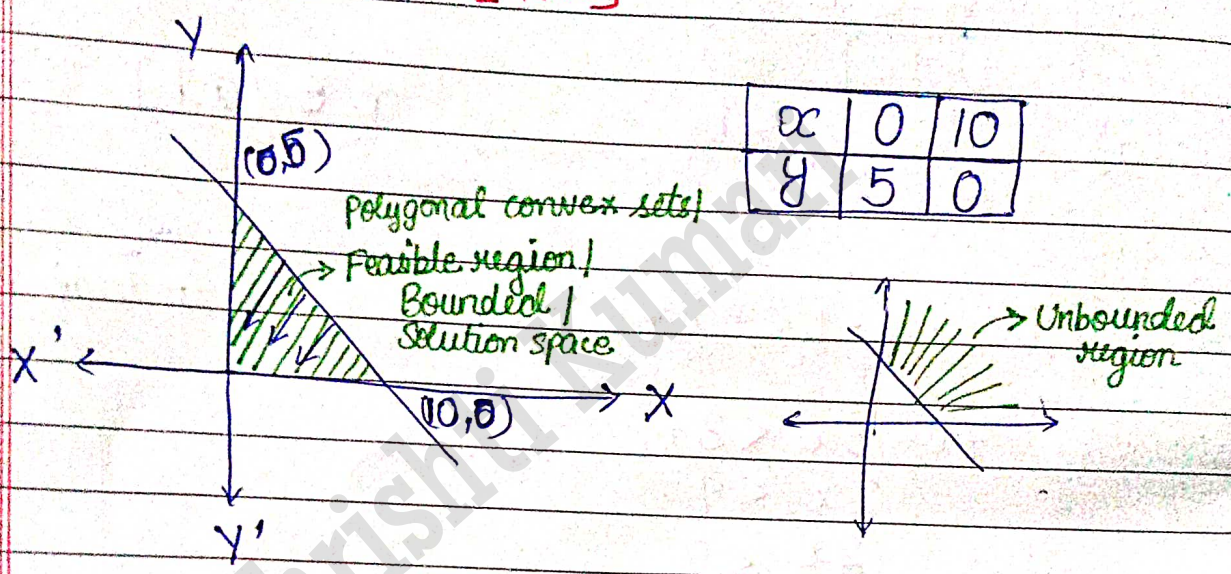 Y
(0,5)
x 0 10
y 5 0
polygonal convex sets/
Feasible region/
Bounded /
Solution space
X'
X
(10,0)
Y'
Unbounded
region
Shrishti Kumari